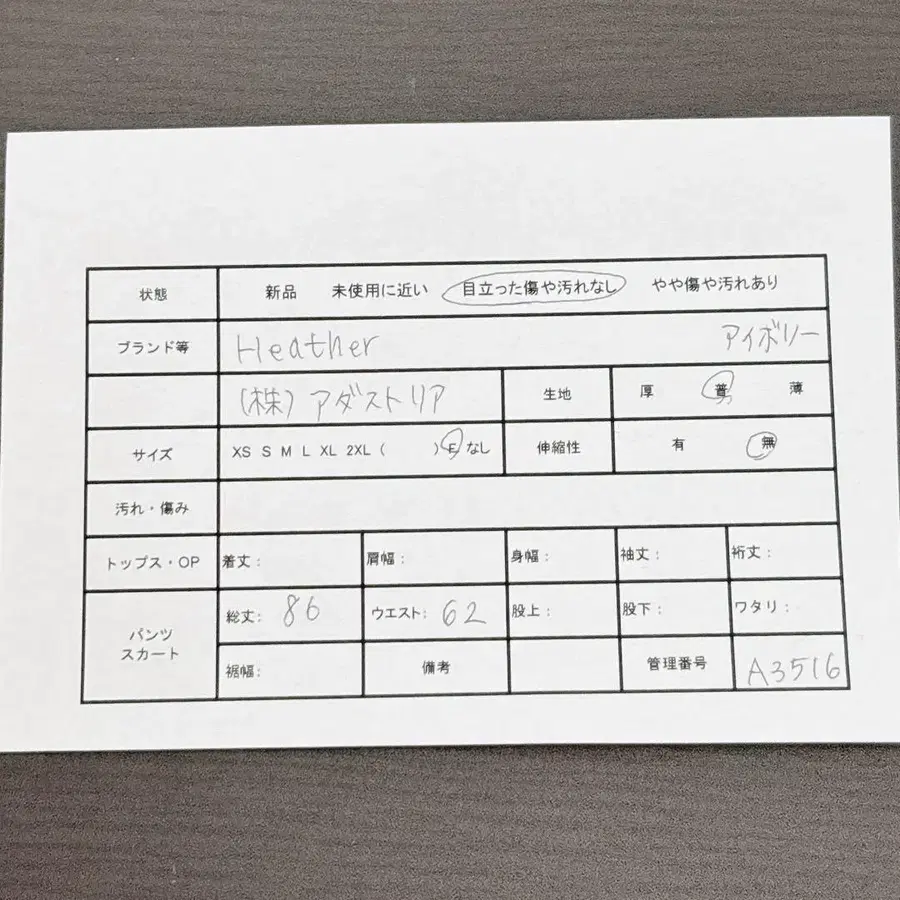 状態 新品 未使用に近い 目立った傷や汚れなし やや傷や汚れあり
ブランド等 Heather アイボリー
(株)アダストリア 生地 厚 普 薄
サイズ XS S M L XL 2XL ( ) F なし 伸縮性 有 無
汚れ・傷み
トップス・OP 着丈: 肩幅: 身幅: 袖丈: 裄丈:
パンツ スカート 総丈: 86 ウエスト: 62 股上: 股下: ワタリ:
裾幅: 備考 管理番号 A3516